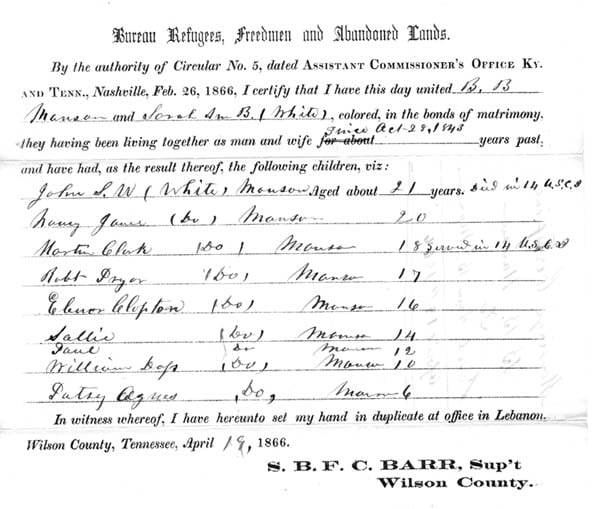 Bureau Refugees, Freedmen and Abandoned Lands.
By the authority of Circular No. 5, dated Assistant Commissioner's Office Ky.
and Tenn., Nashville, Feb. 26, 1866, I certify that I have this day united B. B
Manson and Sarah Ann B. (White), colored, in the bonds of matrimony,
they having been living together as man and wife for about since Oct. 28, 1843 years past,
and have had, as the result thereof, the following children, viz:
John S. W (White) Manson Aged about 21 years. Died in 14 U.S.C.I
Nancy Jane (Do) Manson 20
Martin Clark (Do) Manson 18 served in 14 U.S.C.I
Robt Pryor (Do) Manson 17
Elenor Clopton (Do) Manson 16
Sallie (Do) Manson 14
Paul Do Manson 12
William (Do) Manson 10
Patsy Agnes Do, Manson 6
In witness whereof, I have hereunto set my hand in duplicate at office in Lebanon.
Wilson County, Tennessee, April 19, 1866.
S. B. F. C. BARR, Sup't
Wilson County.